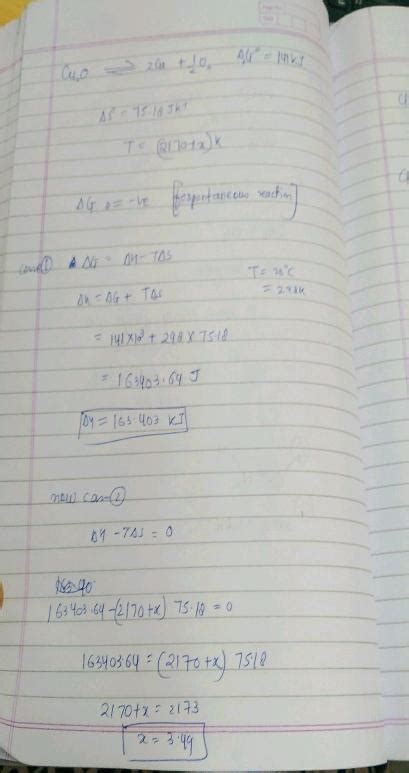 Cu₂O ⇌ 2Cu + ½O₂ ΔG° = 141 kJ
ΔS° = 75.18 JK⁻¹
T = (2170+x)K
ΔG = -ve [for spontaneous reaction]
case ① ΔG = ΔH - TΔS
T = 25°C
= 298K
ΔH = ΔG + TΔS
= 141 × 10³ + 298 × 75.18
= 163403.64 J
ΔH = 163.403 kJ
now case ②
ΔH - TΔS = 0
163403.64 - (2170+x) 75.18 = 0
163403.64 = (2170+x) 75.18
2170+x = 2173
x = 3.49